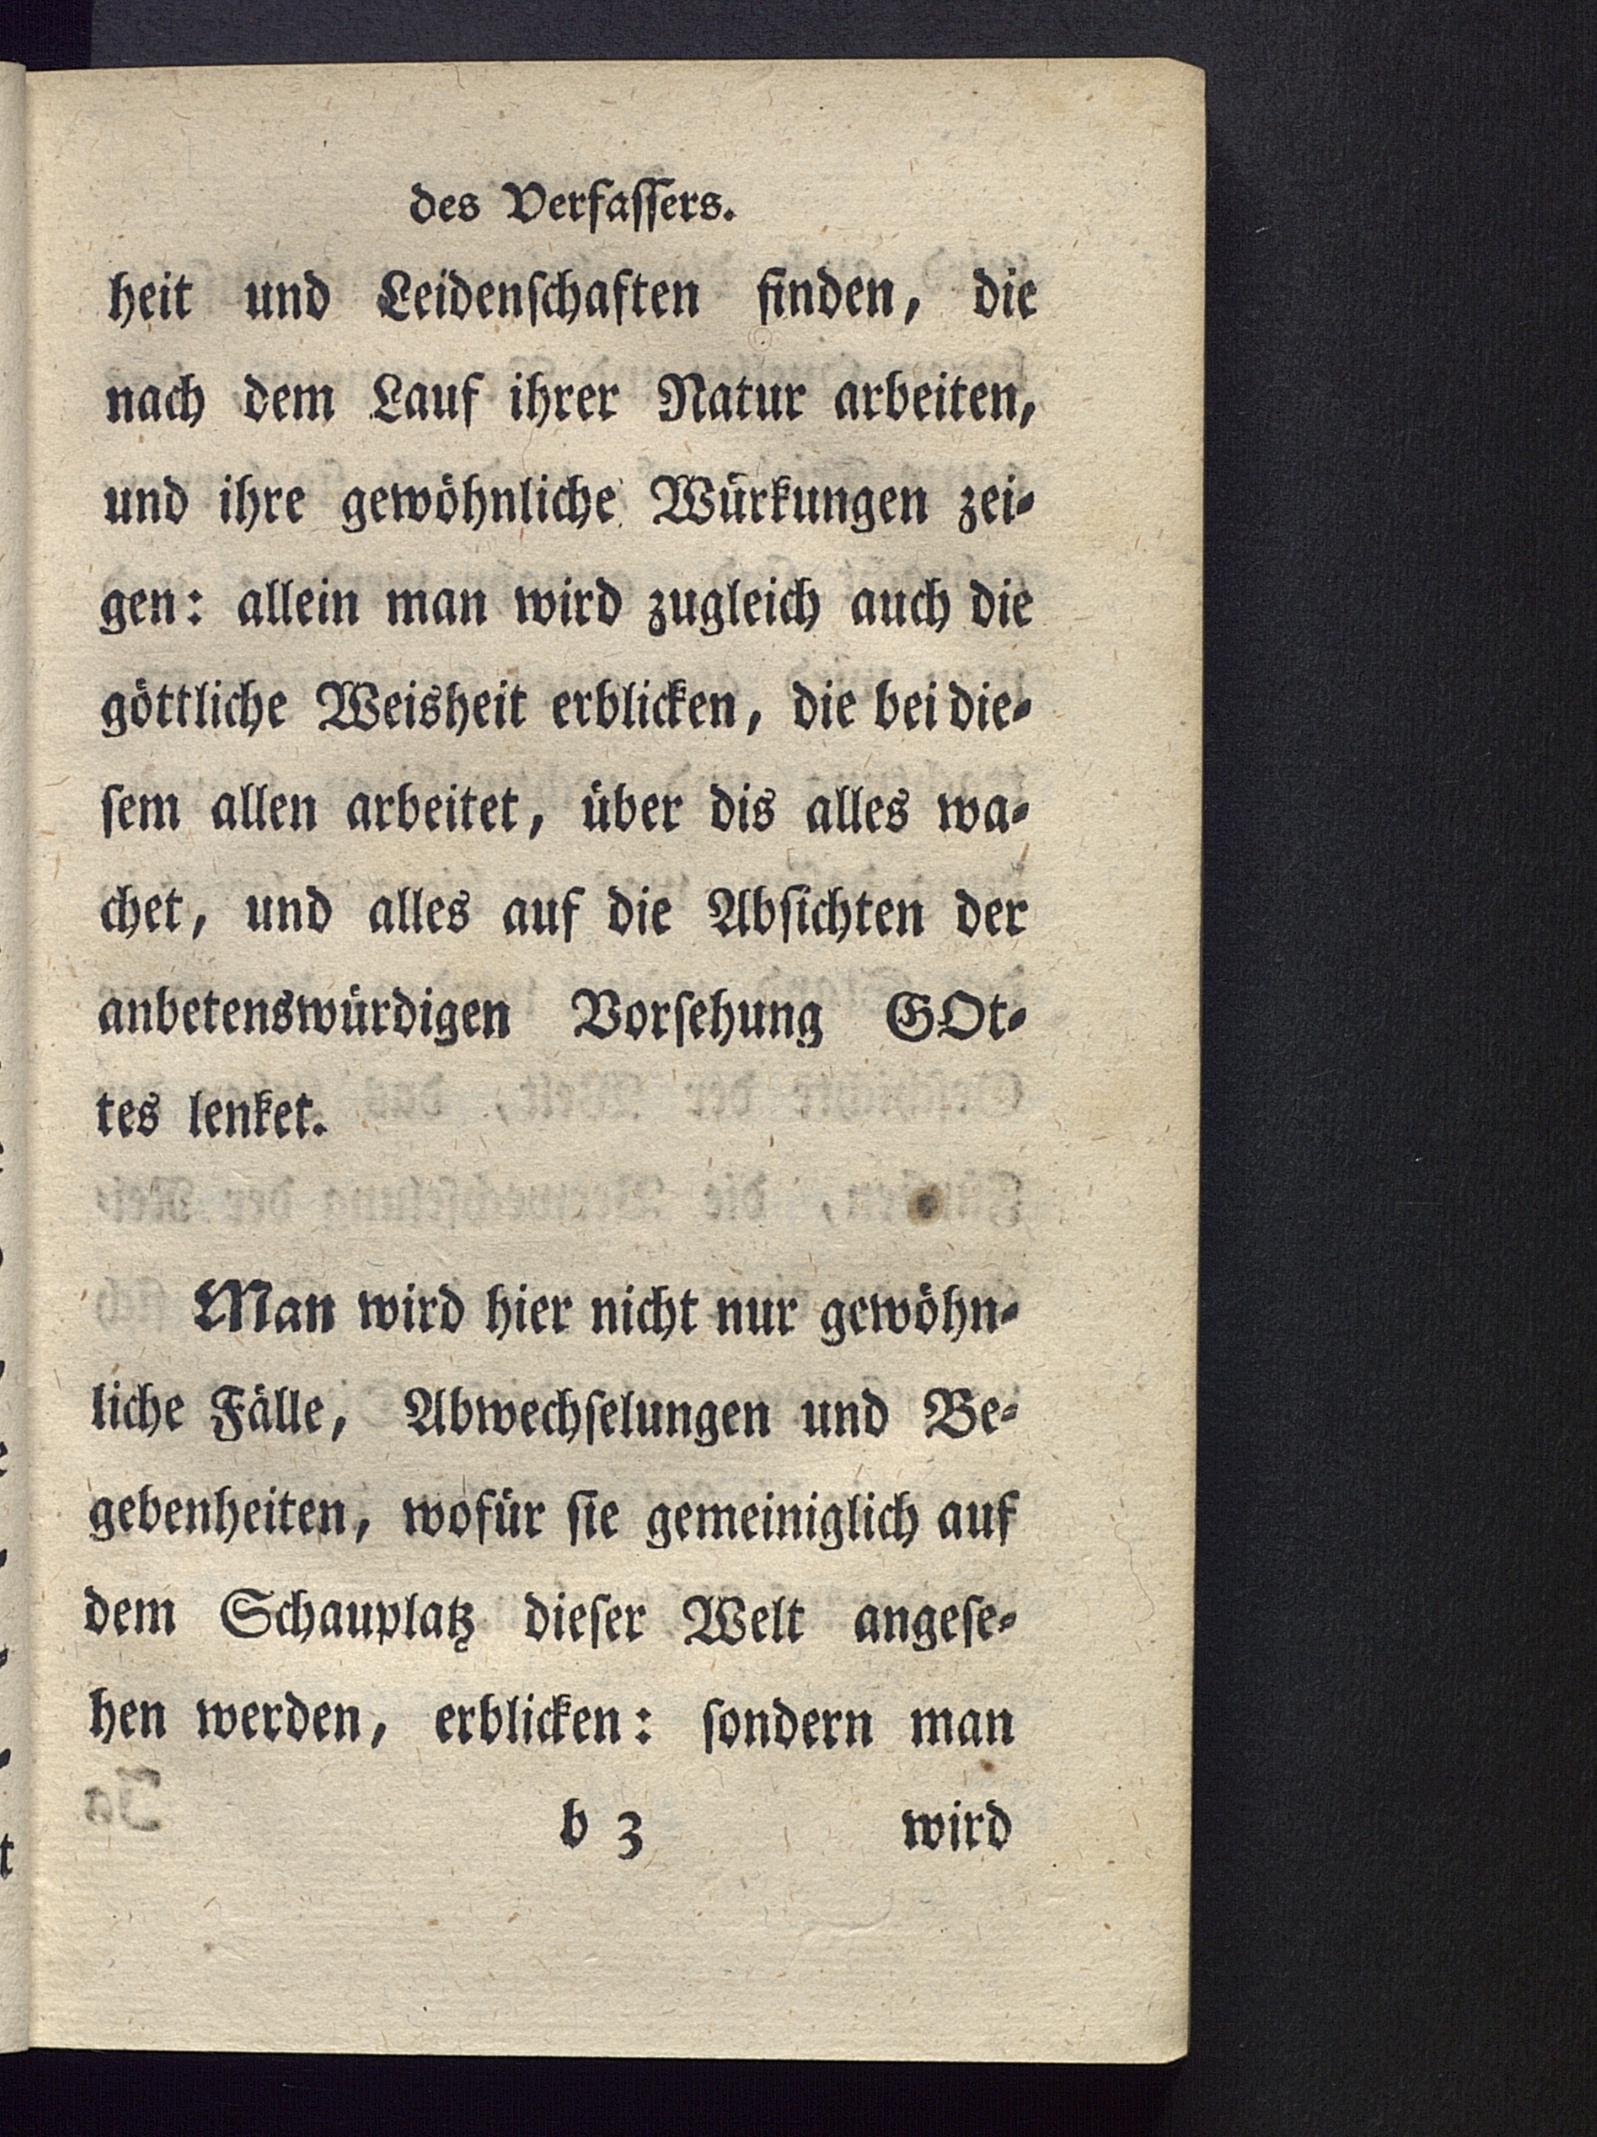 des Verfaſſers.
heit und Leidenſchaften finden, die
nach dem Lauf ihrer Natur arbeiten,
und ihre gewöhnliche Würkungen zei⸗
gen: allein man wird zugleich auch die
göttliche Weisheit erblicken, die bei die⸗
ſem allen arbeitet, über dis alles wa⸗
chet, und alles auf die Abſichten der
anbetenswürdigen Vorſehung GOt⸗
tes lenket.
Man wird hier nicht nur gewöhn⸗
liche Fälle, Abwechſelungen und Be⸗
gebenheiten, wofür ſie gemeiniglich auf
dem Schauplatz dieſer Welt angeſe⸗
hen werden, erblicken: ſondern man
b 3 wird